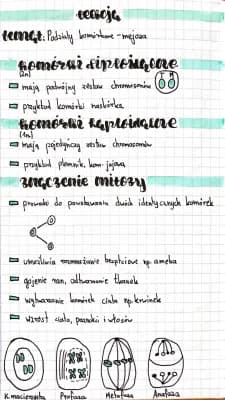 Lekcja
temat: Podziały komórkowe - mejoza
komórki diploidalne
(2n)
mają podwójny zestaw chromosomów
przykład komórki naskórka
komórki haploidalne
(1n)
mają pojedynczy zestaw chromosomów
przykład plemnik, kom. jajowa
znaczenie mitozy
prowadzi do powstawania dwóch identycznych komórek
umożliwia rozmnażanie bezpłciowe np. ameba
gojenie ran, odtwarzanie tkanek
wytwarzanie komórek ciała np. krwinek
wzrost ciała, paznokci i włosów
K. macierzysta Profaza Metafaza Anafaza